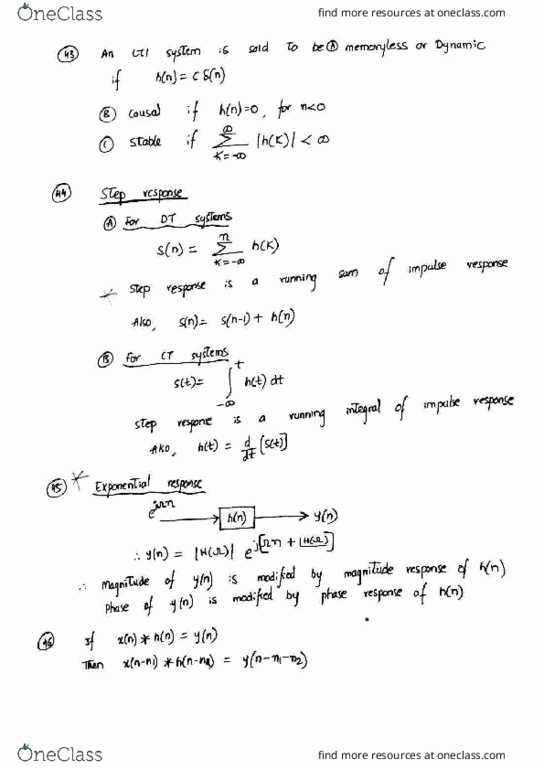 OneClass find more resources at oneclass.com
43 An LTI system is said to be Ⓐ memoryless or Dynamic
if h(n) = C δ(n)
Ⓑ causal if h(n)=0, for n<0
Ⓒ stable if ∞∑K=-∞ |h(K)| < ∞
44 Step response
Ⓐ For DT systems
s(n) = n∑K=-∞ h(K)
* Step response is a running sum of impulse response
Also, s(n) = s(n-1) + h(n)
Ⓑ For CT systems
s(t) = t∫-∞ h(t) dt
step respone is a running integral of impulse response
Also, h(t) = d/dt [s(t)]
45 * Exponential response
e^jΩn → h(n) → y(n)
∴ y(n) = |H(Ω)| e^j[Ωn + ∠H(Ω)]
∴ Magnitude of y(n) is modified by magnitude response of h(n)
Phase of y(n) is modified by phase response of h(n)
46 If x(n) * h(n) = y(n)
Then x(n-n1) * h(n-n2) = y(n-n1-n2)
OneClass find more resources at oneclass.com